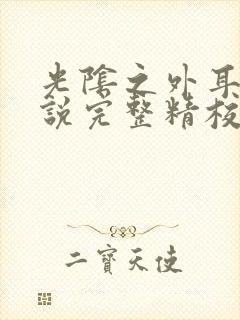 光陰之外耳
說完整精校
二寶天使